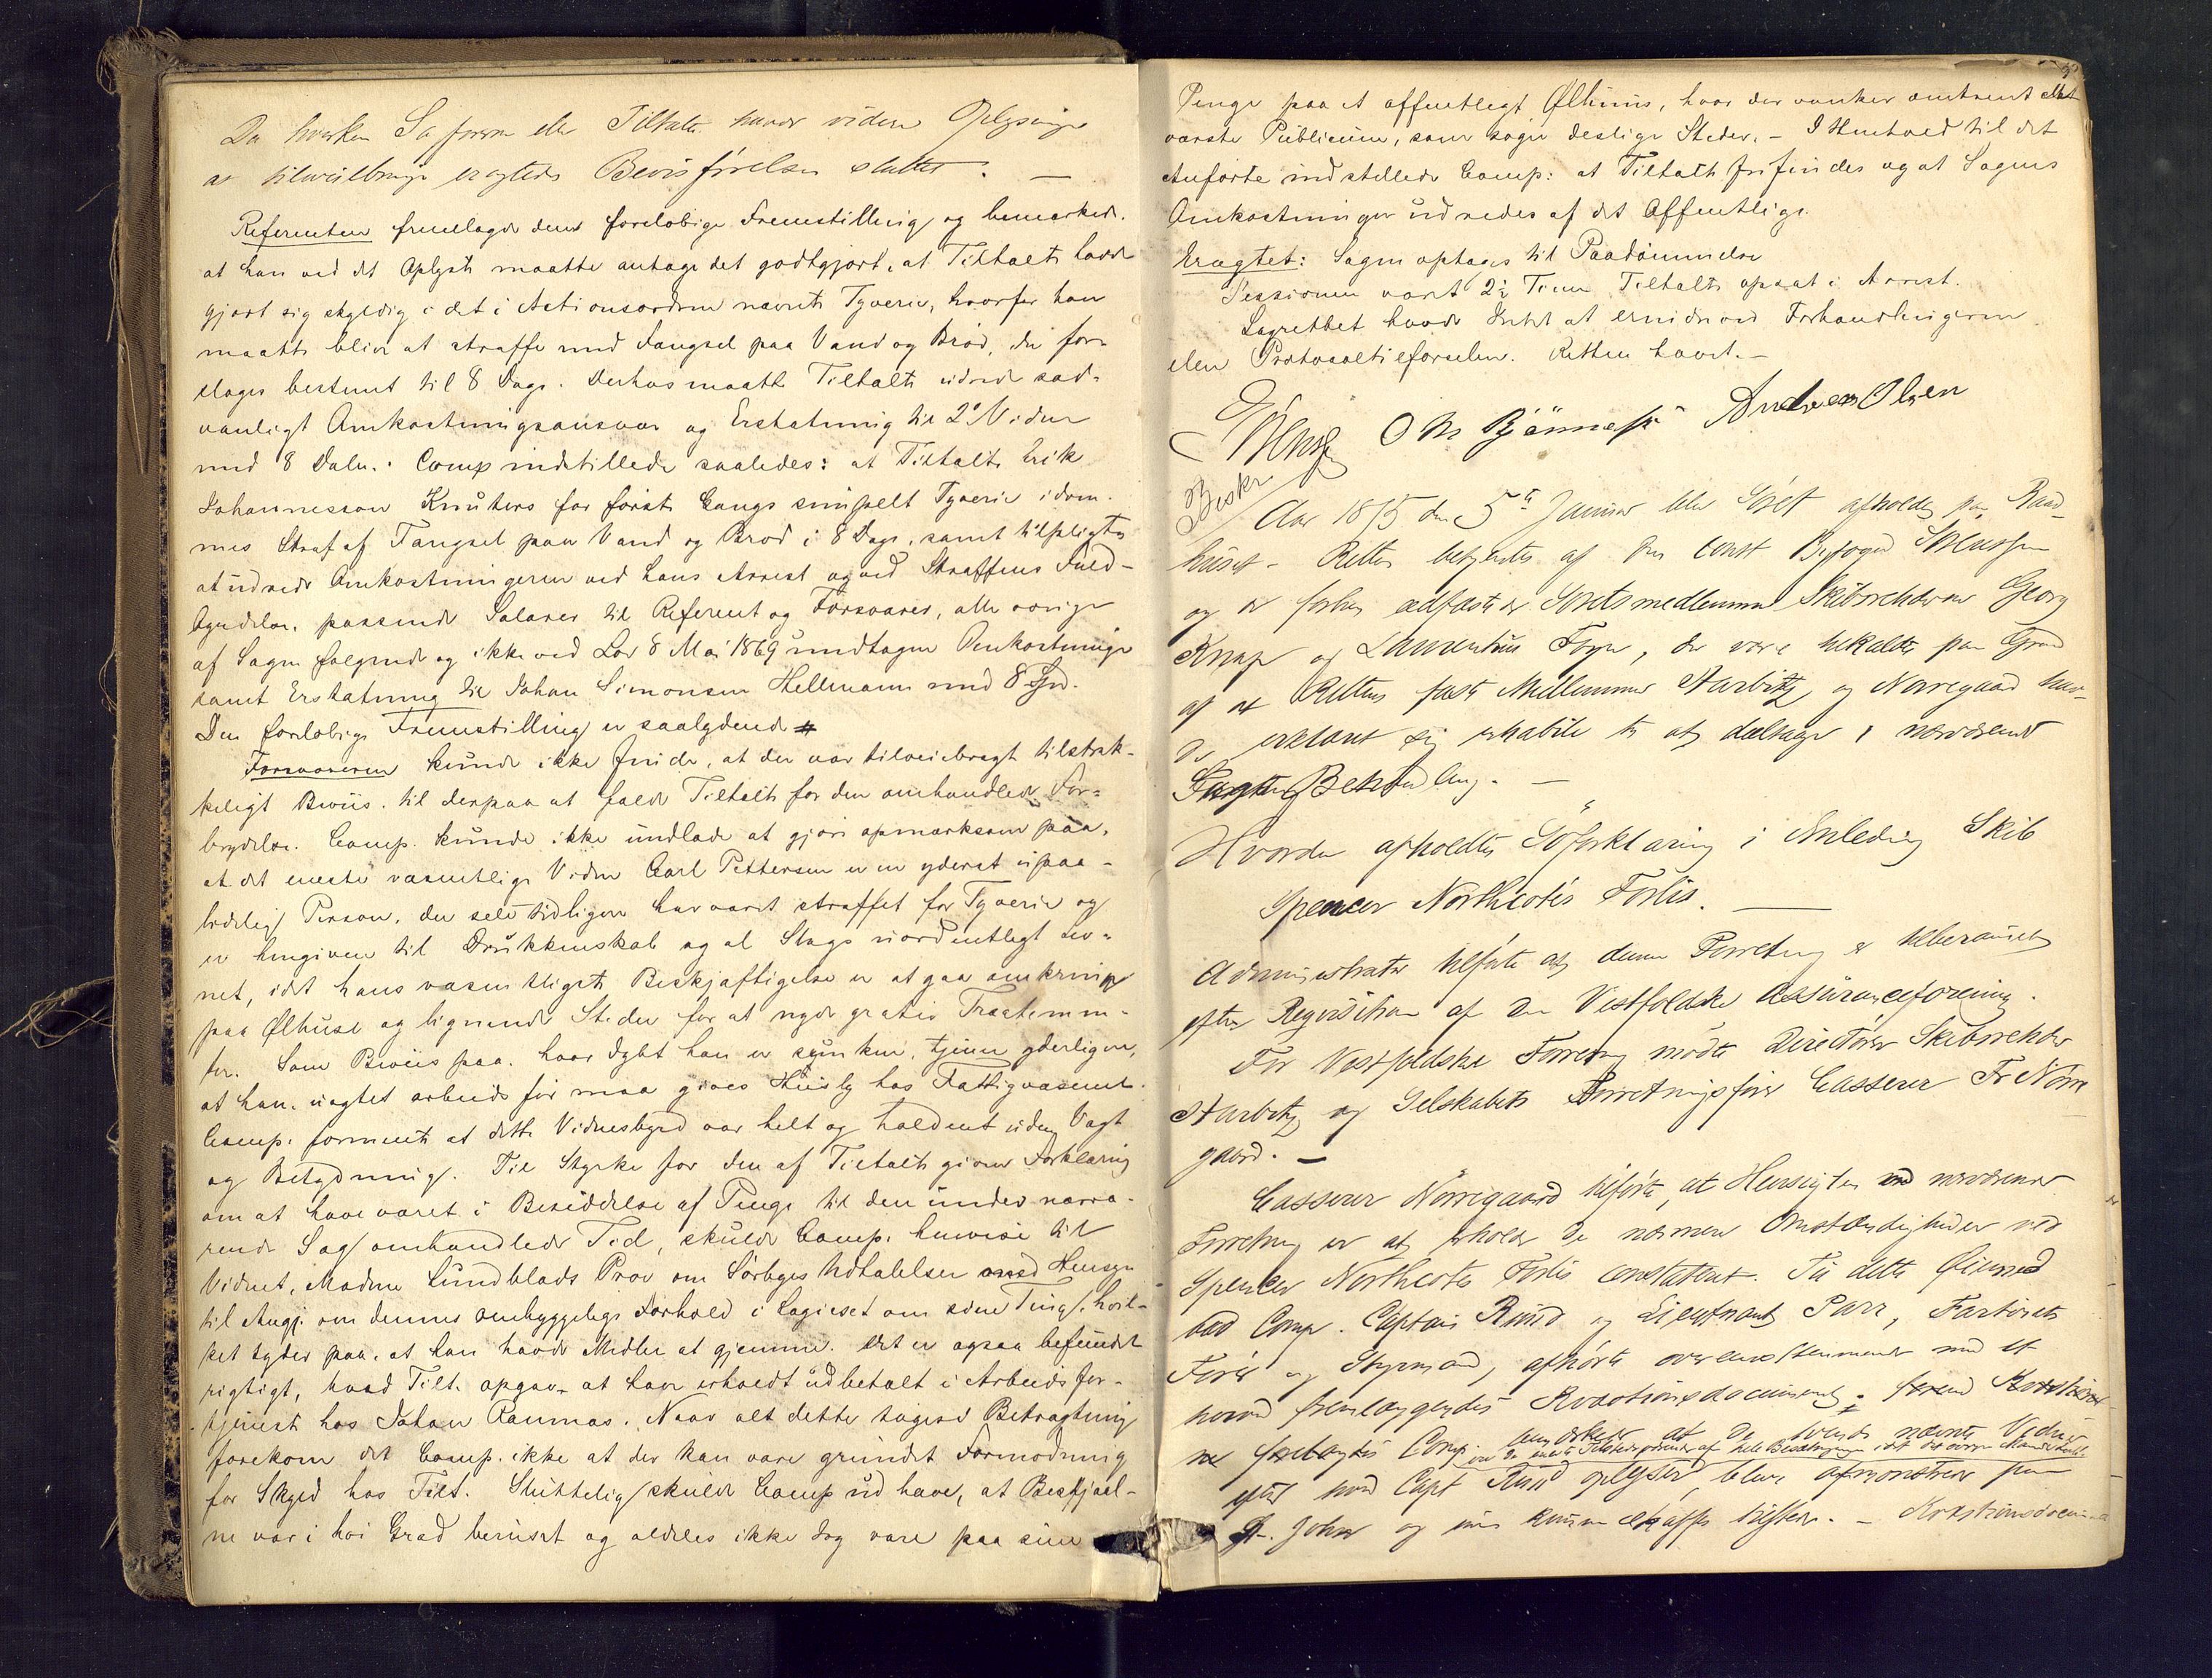 Da hverken Forsvareren eller Tiltalte havde videre Oplysninger
at tilveiebringe eragtedes Bevisførelsen sluttet. —
Referenten fremlagde den foreløbige Fremstilling og bemærkede.
at han ved det Oplyste maatte antage det godtgjort, at Tiltalte havde
gjort sig skyldig i det i Actionsordren nævnte Tyveri, hvorfor han
maatte blive at straffe med Fængsel paa Vand og Brød, der fore-
slages bestemt til 8 Dage. Derhos maatte Tiltalte udrede sæd-
vanligt Omkostningsansvar og Erstatning til 2det Vidne
med 8 Daler. Comp indstillede saaledes: at Tiltalte Erik
Johannesson Knuters for første Gangs simpelt Tyveri idøm-
mes Straf af Fængsel paa Vand og Brød i 8 Dage, samt tilpligtes
at udrede Omkostningerne ved hans Arrest og ved Straffens Fuld-
byrdelse, passende Salarer til Referent og Forsvarer, alle øvrige
af Sagen følgende og ikke ved Lov 8 Mai 1869 undtagne Omkostninger
samt Erstatning til Johan Simonsen Hellmann med 8 Spd.
Den foreløbige Fremstilling er saalydende #
Forsvareren kunde ikke finde, at der var tilveiebragt tilstræk-
keligt Beviis til derpaa at fælde Tiltalte for den omhandlede For-
brydelse. Comp. kunde ikke undlade at gjøre opmærksom paa,
at det eneste væsentlige Vidne Carl Pettersen er en yderst upaa-
lidelig Person, der selv tidligere har været straffet for Tyveri og
er hengiven til Drukkenskab og al Slags uordentligt Lev-
net, idet hans væsentligste Beskjæftigelse er at gaa omkring
paa Ølhuse og lignende Steder for at nyde gratis Tractemen-
ter. Som Beviis paa, hvor dybt han er sunken, tjener yderligere,
at han, uagtet arbeidsfør maa gives Huusly hos Fattigvæsenet.
Comp. formente at dette Vidnesbyrd var helt og holdent uden Vægt
og Betydning. Til Styrke for den af Tiltalte givne Forklaring
om at have været i Besiddelse af Penge til den under nærvæ-
rende Sag omhandlede Tid, skulde Comp. henvise til
Vidnet, Madme Lundblads Prov om Udtalelser med Hensyn
til om dennes omhyggelige Forhold i Logieset om sine Ting, hvil-
ket tyder paa, at han havde Midler at gjemme. Det er ogsaa befundet
rigtigt, hvad Tilt. opgav, at have erholdt udbetalt i Arbeidsfor-
tjeneste hos Johan Raumas. Naar alt dette tages i Betragtning
forekom det Comp. ikke at der kan være grundet Formodning
for Skyld hos Tilt. Sluttelig skulde Comp udhæve, at Bestjaal-
ne var i høi Grad beruset og aldeles ikke tog vare paa sine
Penge paa et offentligt Ølhuus, hvor der vanker omtrent det
værste Publicum, som søger deslige Steder. – I Henhold til det
Anførte indstillede Comp: at Tiltalte frifindes og at Sagens
Omkostninger udredes af det Offentlige.
Eragtet: Sagen optages til Paadømmelse
Sessionen varet 2½ Time. Tiltalte opsat i Arrest.
Lagrettet havde Intet at erindre ved Forhandlingerne
eller Protocoltilførselen. Retten hævet. –
O M Bjønness Andreas Olsen
Beskr.
Aar 1875 den 5te Januar blev Søret afholdt paa Raad-
huset – Retten betjentes af den const Byfoged
og de forhen edfæstede Søretsmedlemmer Skibsrheder Georg
Knap og Laurentius Foyn, der vare tilkaldte paa Grund
af at Rettens faste Medlemmer Aarbitz og Nørregaard hav-
de erklæret sig inhabile til at deltage i nærværende
Sags Behandling. —
Hvorda afholdtes Søforklaring i Anledning Skib
Spencer Northcotes Forlis. —
Administrator tilførte at denne Forretning er berammet
efter Requisition af den Vestfoldske Assuranceforening.
For Vestfoldske Forening mødte Directører Skibsrheder
Aarbitz og Selskabets Forretningsfører Casserer Fr Nørre
gaard. —
Casserer Nørregaard tilførte, at Hensigten med nærværende
Forretning er at erholde de nærmere Omstændigheder ved
Spencer Northcotes Forlis constateret. Til dette Øiemed
bad Comp. Captain Ruud og Parr, Fartøiets
Fører og Styrmand, afhørte overensstemmende med et
herved fremlæggendes Kvæstionsdocument.
Comp. bemærkede at de nævnte Vidner
af hele Besætningen idet
efter hvad Capt Ruud oplyser, bleve afmønstrede paa
St. John og ere kunne skaffes tilstede. – Kvæstionsdocumentet